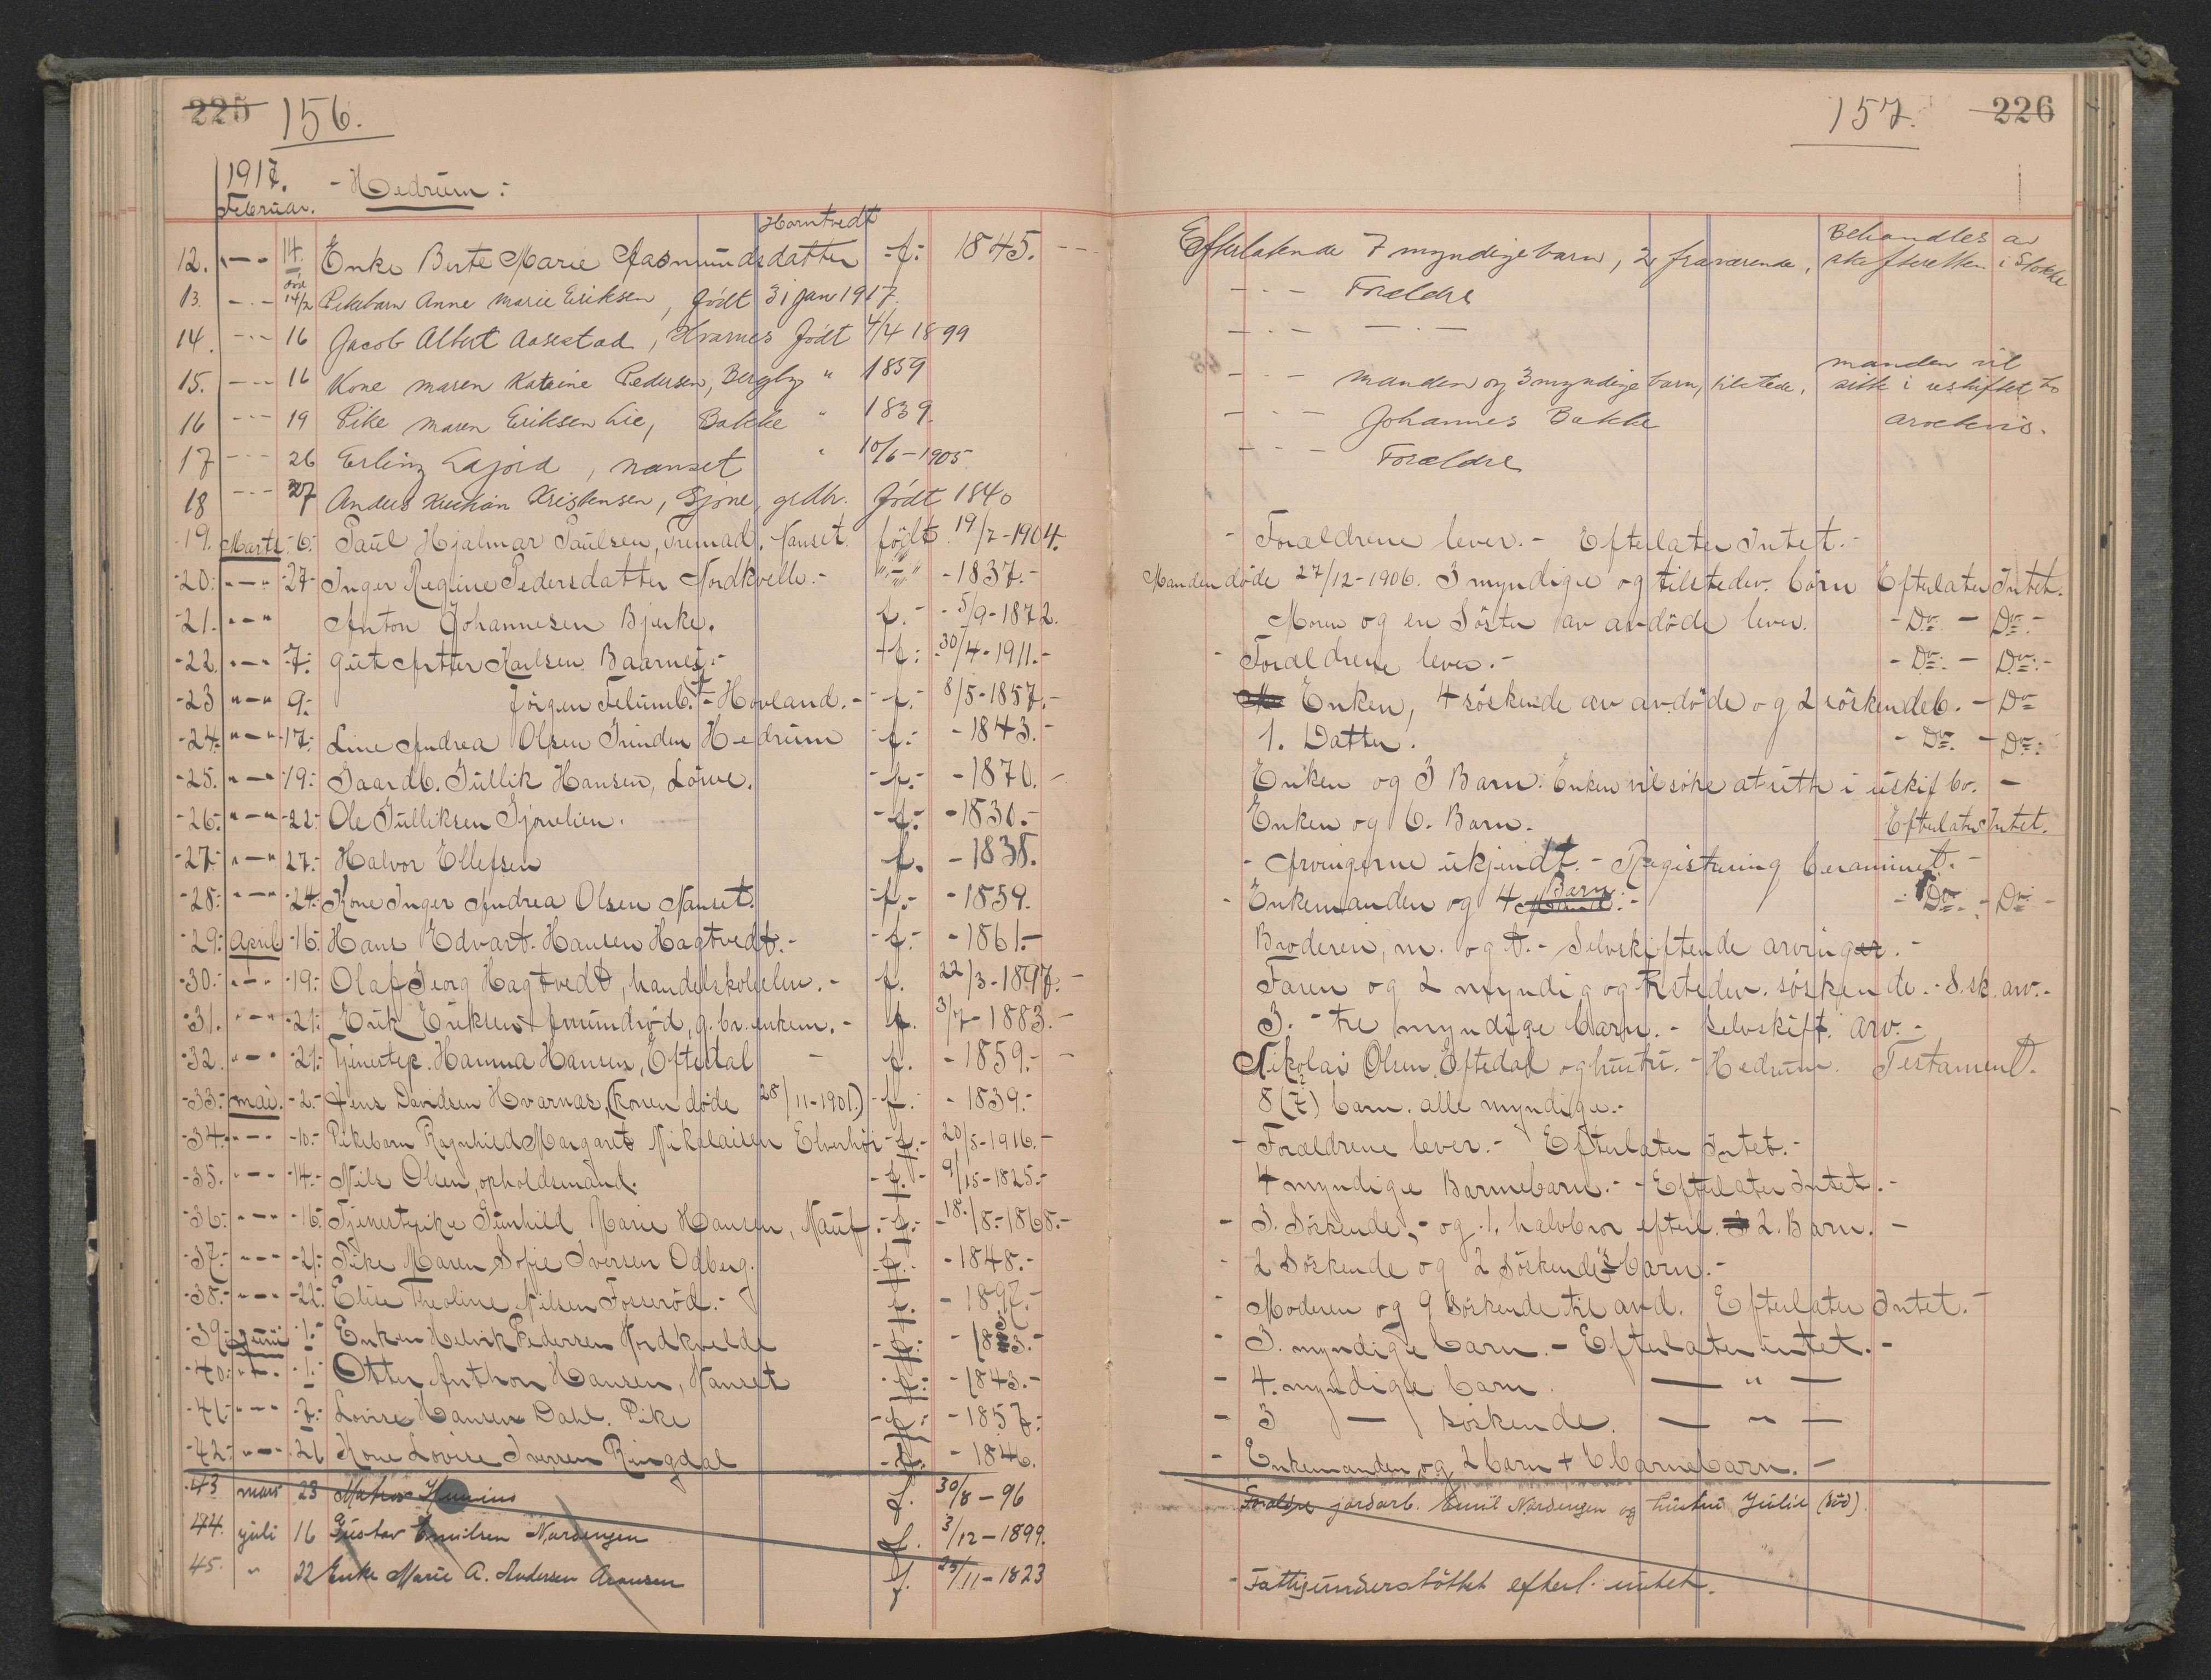 225 156.
157. 226
1917. - Hedrum :-
Februar.
Horntvedt
12. " — " 14. Enke Berte Marie Aasmundsdatter - f: 1845. - - Efterlatende 7 myndige barn, 2 fraværende, Behandles av skifteretten i Stokke
13. - · - 14/2 Pikebarn Anne Marie Eriksen, født 31 jan 1917. - · - Forældre
14. - · · - 16 Jacob Albert Aasestad, Hvarnes født 4/4 1899 - · - - · -
15. - · - 16 Kone Maren Katrine Pedersen, Bergby " 1839 - · - Manden og 3 myndige barn, tilstede, manden vil sitte i uskiftet bo
16 - · · - 19 Pike Maren Eriksen Lie, Bakke " 1839. - · - Johannes Bakke
17 - · · - 26 Erling Lajord, Nanset " 10/6 - 1905 - · - Forældre
18 - · · - 27 Anders Kristian Kristensen, Gjone, grdbr. født 1840
19. Marts. 6. Paul Hjalmar Paulsen, Fremad. Nanset. født 19/7 - 1904. - Forældrene lever. - Efterlater Intet. -
20. " — " 27 Inger Regine Pedersdatter Nordkvelle. - " — " - 1837. - Manden døde 27/12 - 1906. 3 myndige og tilstedev. børn Efterlater Intet.
21. " — " Anton Johannesen Bjerke. f. - 5/9 - 1872. Moren og en Søster av avdøde lever. - Do - Do -
22. " — " 7. Gut Artter Karlsen Baarnes. - f: 30/4 - 1911. - - Forældrene lever. - - Do - Do: -
23 " — " 9. Jørgen Felumb. - Hovland. - - f. 8/5 - 1857. - Enken, 4 søskende av avdøde og 2 søskendeb. - Do
24. " — " 17. Line Andrea Olsen Hedrum f. - 1843. - 1. Datter. - Do. - Do:
25. " — " 19. Gaardb. Gullik Hansen, Lørve. - f. - - 1870. Enken og 3 Barn. Enken vil søke at sitte i uskif bo. -
26. " — " 22. Ole Gulliksen Gjonelien. - f. - - 1830. - Enken og 6. Barn. Efterlater Intet.
27. " — " 27. Halvor Ellefsen f. - 1838. - Arvingerne ukjendt. - Registrering berammet. -
28. " — " 24. Kone Inger Andrea Olsen Nanset. f. - - 1859. - Enkemanden og 4 Barn. - - Do - Do -
29. April 16. Hans Edvart Hansen Hagtvedt. - f. - - 1861. - Broderen, m. og t. - Selvskiftende arvinger. -
30. " — " 19. Olaf Georg Hagtvedt, handelskoleelev. - f. 22/3 - 1897. - Faren og 2 myndig og tilstedev. søskende. - S. sk. arv. -
31. " — " 21. Erik Eriksen Amundrød, g. br. enkem. - f. 3/7 - 1883. - 3. - tre myndige barn. - selvskift. arv. -
32. " — " 21. Tjenestep. Hanna Hansen, Eftedal - f. - 1859. - - Nikolai Olsen Eftedal og hustru. - Hedrum. Testament.
33. mai. 2. Jens Davidsen Hvarnes, (konen døde 28/11 - 1901.) - f. - 1839. - 8 (7) barn. alle myndige. -
34. " — " 10. Pikebarn Ragnhild Margaret Nikolaisen Elverhøi - f. - 20/5 - 1916. - - Forældrene lever. - Efterlater Intet. -
35. " — " 14. Nils Olsen, opholdsmand. - f. - 9/15 - 1825. - 4 myndige Barnebarn. - - Efterlater Intet. -
36. " — " 16. Tjenestpike Gunhild Marie Hansen, Nauf. - f. - 18/8 - 1868. - - 3. Søskende, - og 1. halvbror efterl. 2. Barn. -
37. " — " 21. Pike Maren Sofie Iversen Odberg. f. - 1848. - - 2 Søskende og 2 Søskende's barn. -
38. " — " 22. Elise Theoline Nilsen Fosserød. - f. - 1897. - - Moderen og 9 Søskende til avd. Efterlater Intet. -
39. Juni 1. Enken Helvik Pedersen Nordkvelde f. - 3. - - 3. myndige barn. - Efterlater intet. -
40. " — " 1. Otter Anthon Hansen, Nanset f. - 1843. - - 4. myndige barn. — " —
41. " — " 7. Lovise Hansen Dahl. Pike - f. - 1857. - 3 — søskende. — " —
42. " — " 26 Kone Lovise Iversen Ringdal - f. - 1846. - Enkemanden, og 2 barn + 6 barnebarn. -
43 mars 23 f. 30/8 - 96
44. juli 16 Gustav Emilsen Nordengen f. 3/12 - 1899. Forældre jordarb. Emil Nordengen og hustru Julie (død).
45. " 22 Enke Marie A. Andersen f. 25/11 - 1823 - Fattigunderstøttet efterl. intet.